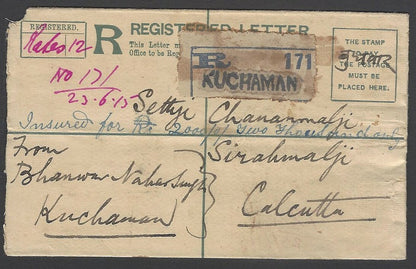 REGISTERED.
REGISTERED LETTER
R
This Letter mu
Office to be Regi
THE STAMP
TO PAY
THE POSTAGE
MUST BE
PLACED HERE.
Rates 12
R 171
KUCHAMAN
No 171
23-6-13
Settji Chananmalji
Insured for Rs 2000/ Two Thousand only
From
Sirahmalji
Bhanwar Nahar Singh
Kuchaman
Calcutta